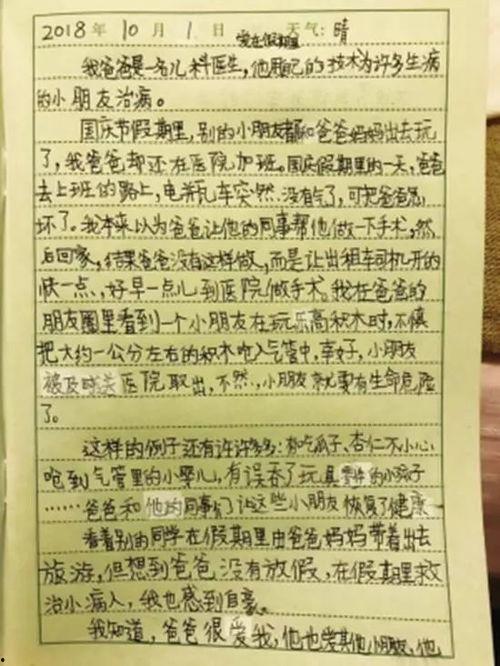 2018年10月1日 天气:晴
爱在假期里
我爸爸是一名儿科医生,他用自己的技术为许多生病
的小朋友治病。
国庆节假期里,别的小朋友都和爸爸妈妈出去玩
了,我爸爸却还在医院加班。国庆假期里的一天,爸爸
去上班的路上,电瓶车突然没有气了,可把爸爸急
坏了。我本来以为爸爸让他的同事帮他做一下手术,然
后回家,结果爸爸没有这样做,而是让出租车司机开的
快一点,好早一点儿到医院做手术。我在爸爸的
朋友圈里看到一个小朋友在玩乐高积木时,不慎
把大约一公分左右的积木呛入气管中,幸好,小朋友
被及时送医院取出,不然,小朋友就要有生命危险
了。
这样的例子还有许许多多:有吃瓜子、杏仁不小心
呛到气管里的小婴儿,有误吞了玩具零件的小孩子
……爸爸和他的同事们让这些小朋友恢复了健康
看着别的同学在假期里由爸爸妈妈带着出去
旅游,但想到爸爸没有放假,在假期里救
治小病人,我也感到自豪。
我知道,爸爸很爱我,他也爱其他小朋友,他